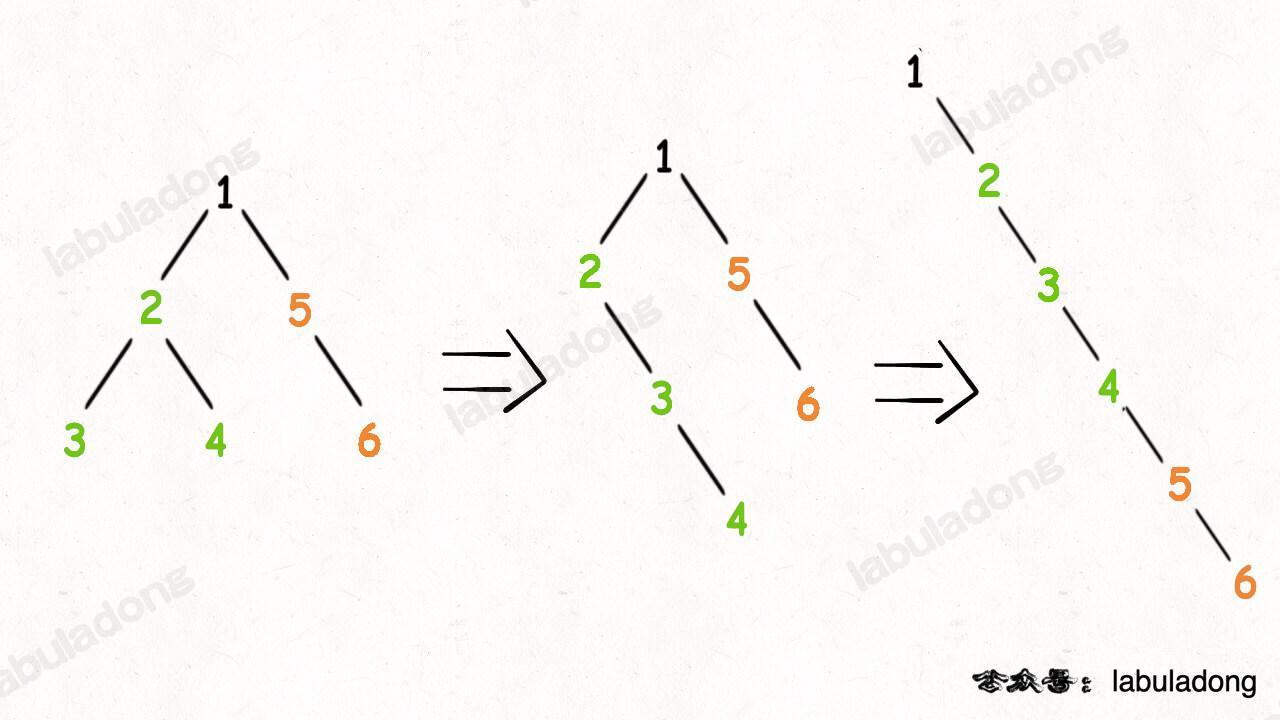 1
2 5
3 4 6
1
2 5
3 6
4
1
2
3
4
5
6
labuladong
labuladong
labuladong
labuladong
labuladong
公众号: labuladong